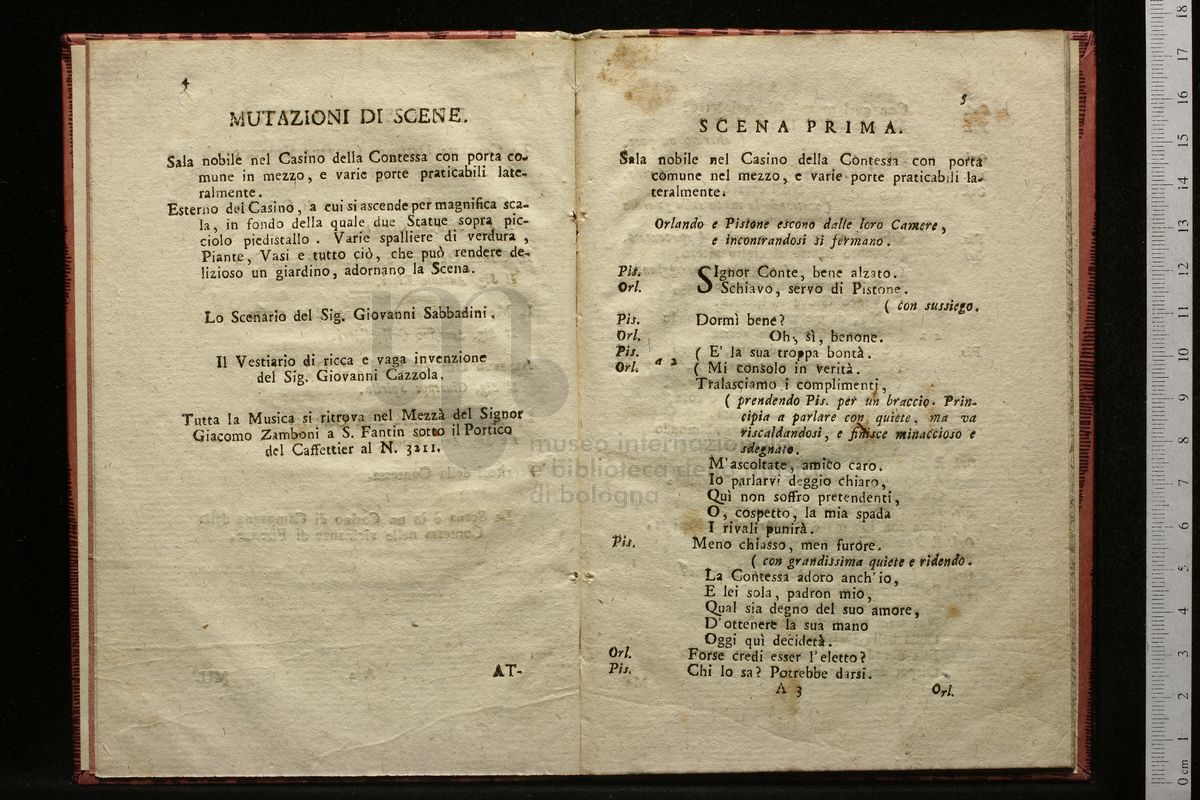 4
MUTAZIONI DI SCENE.
Sala nobile nel Casino della Contessa con porta co-
mune in mezzo, e varie porte praticabili late-
ralmente.
Esterno del Casino, a cui si ascende per magnifica sca-
la, in fondo della quale due Statue sopra pic-
ciolo piedistallo. Varie spalliere di verdura,
Piante, Vasi e tutto ciò, che può rendere de-
lizioso un giardino, adornano la Scena.
Lo Scenario del Sig. Giovanni Sabbadini.
Il Vestiario di ricca e vaga invenzione
del Sig. Giovanni Cazzola.
Tutta la Musica si ritrova nel Mezzà del Signor
Giacomo Zamboni a S. Fantin sotto il Portico
del Caffettier al N. 3211.
AT-
5
SCENA PRIMA.
Sala nobile nel Casino della Contessa con porta
comune nel mezzo, e varie porte praticabili la-
teralmente.
Orlando e Pistone escono dalle loro Camere,
e incontrandosi si fermano.
Pis. SIgnor Conte, bene alzato.
Orl. Schiavo, servo di Pistone.
( con sussiego.
Pis. Dormì bene?
Orl. Oh, sì, benone.
Pis. a 2 ( E' la sua troppa bontà.
Orl. ( Mi consolo in verità.
Tralasciamo i complimenti,
( prendendo Pis. per un braccio. Prin-
cipia a parlare con quiete, ma va
riscaldandosi, e finisce minaccioso e
sdegnato.
M'ascoltate, amico caro.
Io parlarvi deggio chiaro,
Quì non soffro pretendenti,
O, cospetto, la mia spada
I rivali punirà.
Pis. Meno chiasso, men furore.
( con grandissima quiete e ridendo.
La Contessa adoro anch'io,
E lei sola, padron mio,
Qual sia degno del suo amore,
D'ottenere la sua mano
Oggi quì deciderà.
Orl. Forse credi esser l'eletto?
Pis. Chi lo sa? Potrebbe darsi.
A 3
Orl.
museo internazionale
e biblioteca della
di bologna
0 cm 1 2 3 4 5 6 7 8 9 10 11 12 13 14 15 16 17 18